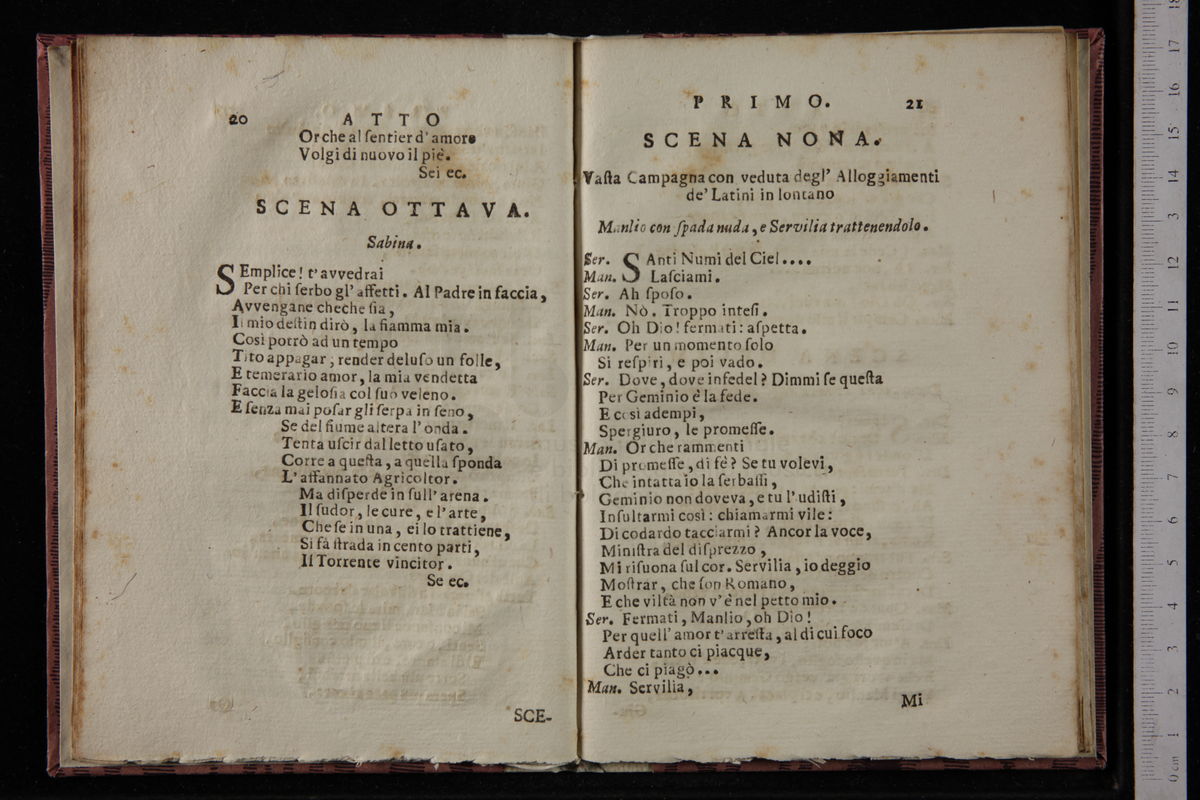 20 ATTO
Or che al ſentier d' amore
Volgi di nuovo il piè.
Sei ec.
SCENA OTTAVA.
Sabina.
SEmplice! t' avvedrai
Per chi ſerbo gl' affetti. Al Padre in faccia,
Avvengane cheche ſia,
Il mio deſtin dirò, la fiamma mia.
Così potrò ad un tempo
Tito appagar; render deluſo un folle,
E temerario amor, la mia vendetta
Faccia la geloſia col ſuo veleno.
E ſenza mai poſar gli ſerpa in ſeno,
Se del fiume altera l' onda.
Tenta uſcir dal letto uſato,
Corre a queſta, a quella ſponda
L' affannato Agricoltor.
Ma diſperde in ſull' arena.
Il ſudor, le cure, e l' arte,
Che ſe in una, ei lo trattiene,
Si fà ſtrada in cento parti,
Il Torrente vincitor.
Se ec.
SCE-
PRIMO. 21
SCENA NONA.
Vaſta Campagna con veduta degl' Alloggiamenti
de' Latini in lontano
Manlio con ſpada nuda, e Servilia trattenendolo.
Ser. SAnti Numi del Ciel....
Man. Laſciami.
Ser. Ah ſpoſo.
Man. Nò. Troppo inteſi.
Ser. Oh Dio! fermati: aſpetta.
Man. Per un momento ſolo
Si reſpiri, e poi vado.
Ser. Dove, dove infedel? Dimmi ſe queſta
Per Geminio è la fede.
E così adempi,
Spergiuro, le promeſſe.
Man. Or che rammenti
Di promeſſe, di fè? Se tu volevi,
Che intatta io la ſerbaſſi,
Geminio non doveva, e tu l' udiſti,
Inſultarmi così: chiamarmi vile:
Di codardo tacciarmi? Ancor la voce,
Miniſtra del diſprezzo,
Mi riſuona ſul cor. Servilia, io deggio
Moſtrar, che ſon Romano,
E che viltà non v' è nel petto mio.
Ser. Fermati, Manlio, oh Dio!
Per quell' amor t' arreſta, al di cui foco
Arder tanto ci piacque,
Che ci piagò...
Man. Servilia,
Mi